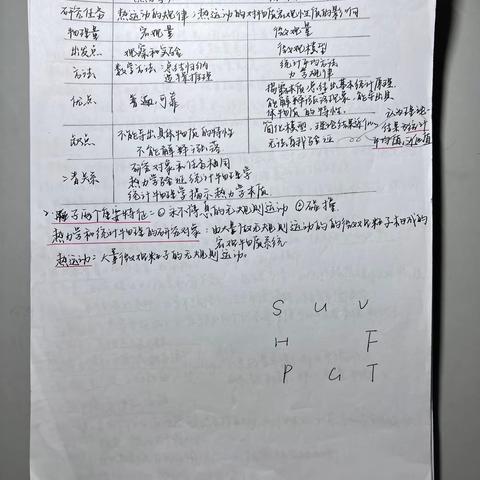 研究任务 热运动的规律,热运动的对物质宏观性质的影响
物理量 宏观量 微观量
出发点 观察和实验 微观模型
方法 数学方法: 总结归纳 统计平均方法
逻辑推理 力学规律
优点 普遍,可靠
能解释涨落现象,能导出具
体物质的特性。
缺点 不能导出具体物质的特性 简化模型,理论结果近似
不能解释涨落 无法自我验证 平均值,近似值
二者关系 研究对象和任务相同
热力学验证统计物理学
统计物理学揭示热力学本质
分子两个重要特征:①永不停息的无规则运动 ②碰撞
热力学和统计物理的研究对象:由大量做无规则运动的的微观粒子组成的
宏观物质系统
热运动:大量微观粒子的无规则运动。
S U V
H F
P G T